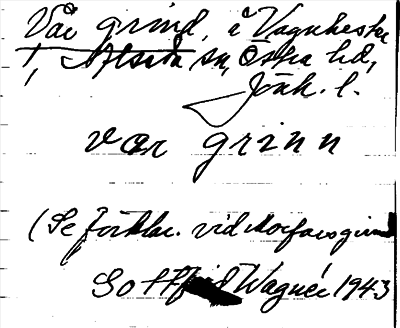 Vår grind, å Vagnhester
1, Alseda sn, Östra hd,
Jönk. l.
var grinn
(Se förklar. vid Morfarsgrind
Gottfrid Wagnér 1943